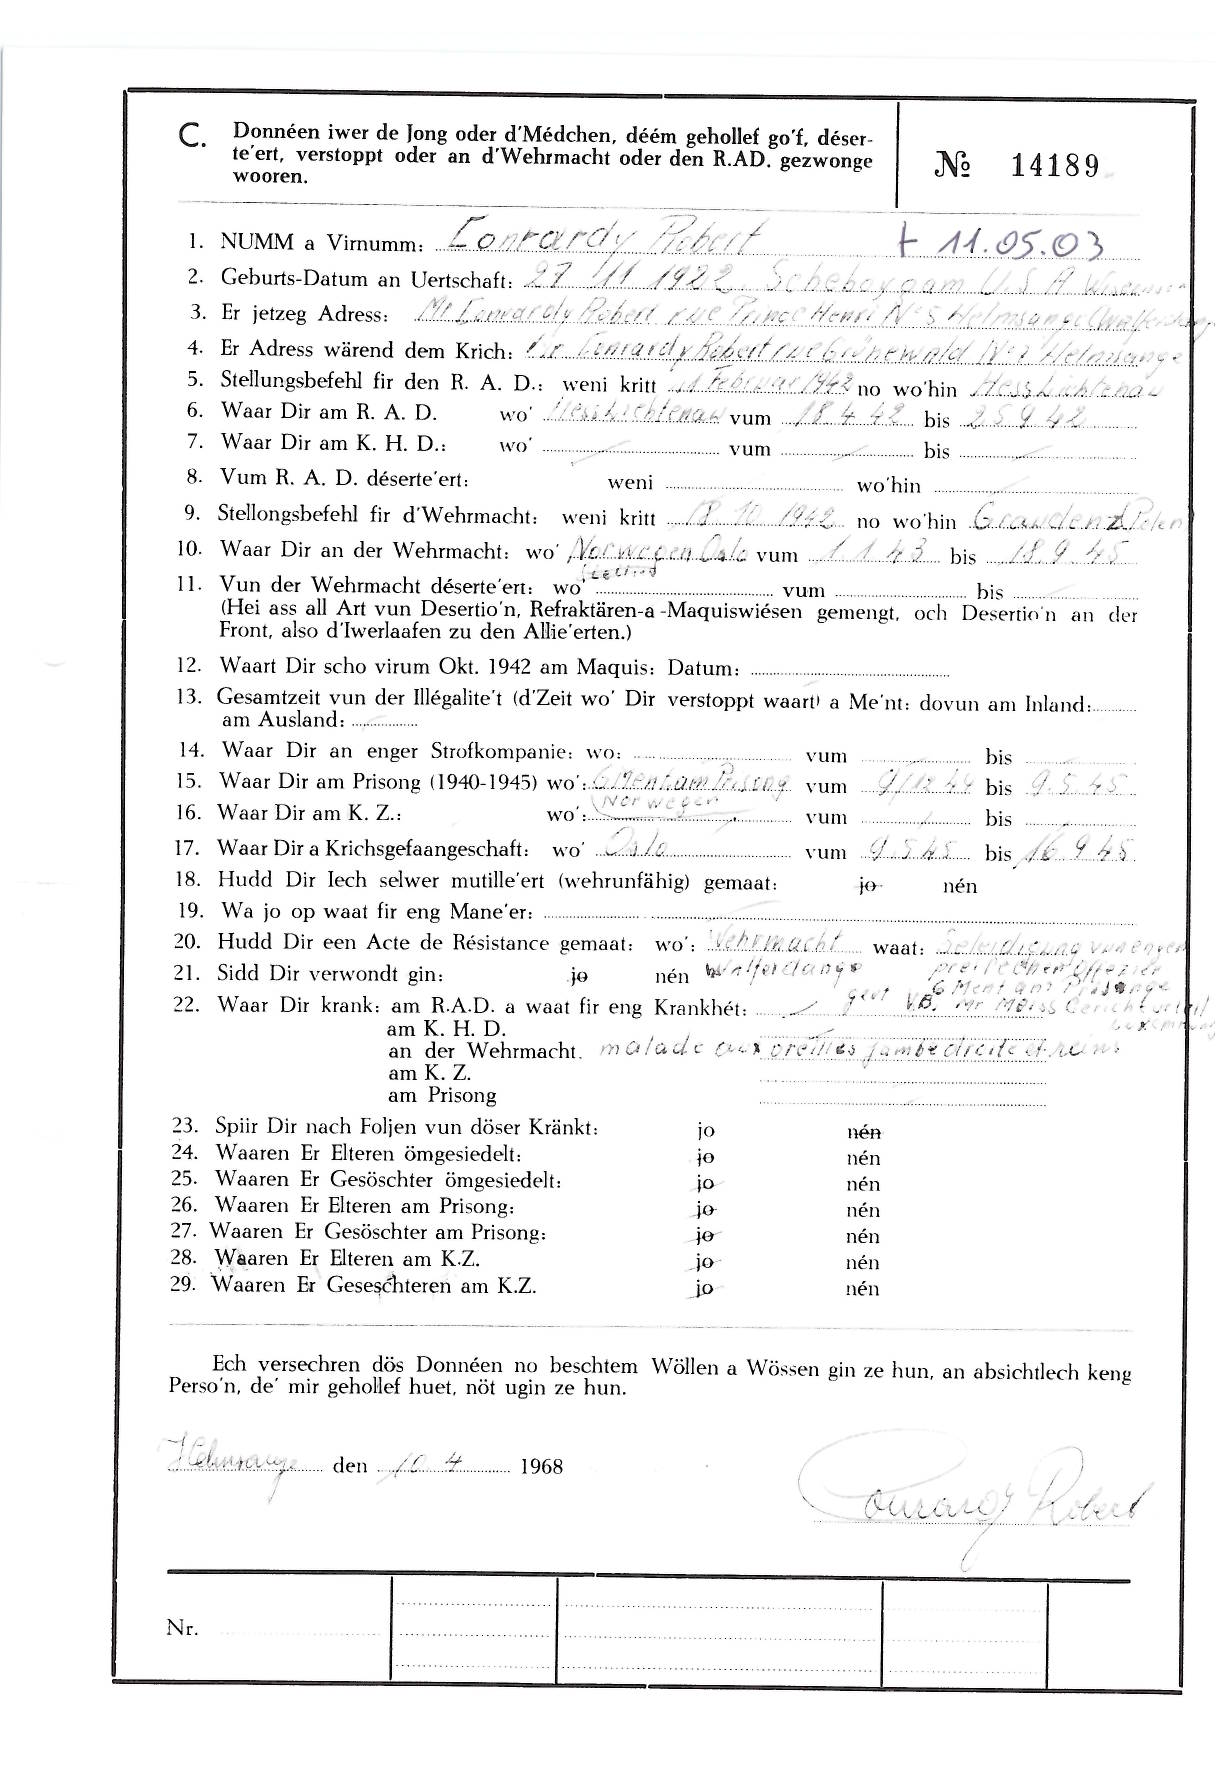 C. Donnéen iwer de Jong oder d'Médchen, déém gehollef go'f, déser-
te'ert, verstoppt oder an d'Wehrmacht oder den R.AD. gezwonge
wooren.
№ 14189
1. NUMM a Virnumm: Conrardy Robert † 11.05.03
2. Geburts-Datum an Uertschaft: 27 11 1922 Scheboygam U S A
3. Er jetzeg Adress: Mr Conrardy Robert rue Prince Henri N° 5 Helmsange
4. Er Adress wärend dem Krich: Mr Conrardy Robert rue Grünewald N° 7 Helmsange
5. Stellungsbefehl fir den R. A. D.: weni kritt 1 Februar 1942 no wo'hin Hess Lichtenau
6. Waar Dir am R. A. D. wo' HessLichtenau vum 18 4 42 bis 25 9 42
7. Waar Dir am K. H. D.: wo' vum bis
8. Vum R. A. D. déserte'ert: weni wo'hin
9. Stellongsbefehl fir d'Wehrmacht: weni kritt 18 10 1942 no wo'hin Graudenz Polen
10. Waar Dir an der Wehrmacht: wo' Norwegen Oslo vum 1 1 43 bis 18 9 45
11. Vun der Wehrmacht déserte'ert: wo' vum bis
(Hei ass all Art vun Desertio'n, Refraktären-a -Maquiswiésen gemengt, och Desertio'n an der
Front, also d'Iwerlaafen zu den Allie'erten.)
12. Waart Dir scho virum Okt. 1942 am Maquis: Datum:
13. Gesamtzeit vun der Illégalite't (d'Zeit wo' Dir verstoppt waart) a Me'nt: dovun am Inland:
am Ausland:
14. Waar Dir an enger Strofkompanie: wo: vum bis
15. Waar Dir am Prisong (1940-1945) wo': 6 Ment am Prisong vum 9/12 44 bis 9.5.45
Norwegen
16. Waar Dir am K. Z.: wo': vum bis
17. Waar Dir a Krichsgefaangeschaft: wo' Oslo vum 9 5 45 bis 16 9 45
18. Hudd Dir Iech selwer mutille'ert (wehrunfähig) gemaat: jo nén
19. Wa jo op waat fir eng Mane'er:
20. Hudd Dir een Acte de Résistance gemaat: wo': Wehrmacht waat: Beleidigung vun engen
21. Sidd Dir verwondt gin: jo nén Walferdange preisechen Offezier
6 Ment am Prisong
22. Waar Dir krank: am R.A.D. a waat fir eng Krankhét: V.B. Mr Meiss Gericht
am K. H. D.
an der Wehrmacht. malade aux oreilles jambe droite et reins
am K. Z.
am Prisong
23. Spiir Dir nach Foljen vun döser Kränkt: jo nén
24. Waaren Er Elteren ömgesiedelt: jo nén
25. Waaren Er Gesöschter ömgesiedelt: jo nén
26. Waaren Er Elteren am Prisong: jo nén
27. Waaren Er Gesöschter am Prisong: jo nén
28. Waaren Er Elteren am K.Z. jo nén
29. Waaren Er Geseschteren am K.Z. jo nén
Ech versechren dös Donnéen no beschtem Wöllen a Wössen gin ze hun, an absichtlech keng
Perso'n, de' mir gehollef huet, nöt ugin ze hun.
Helmsange den 10 4 1968
Conrardy Robert
Nr.